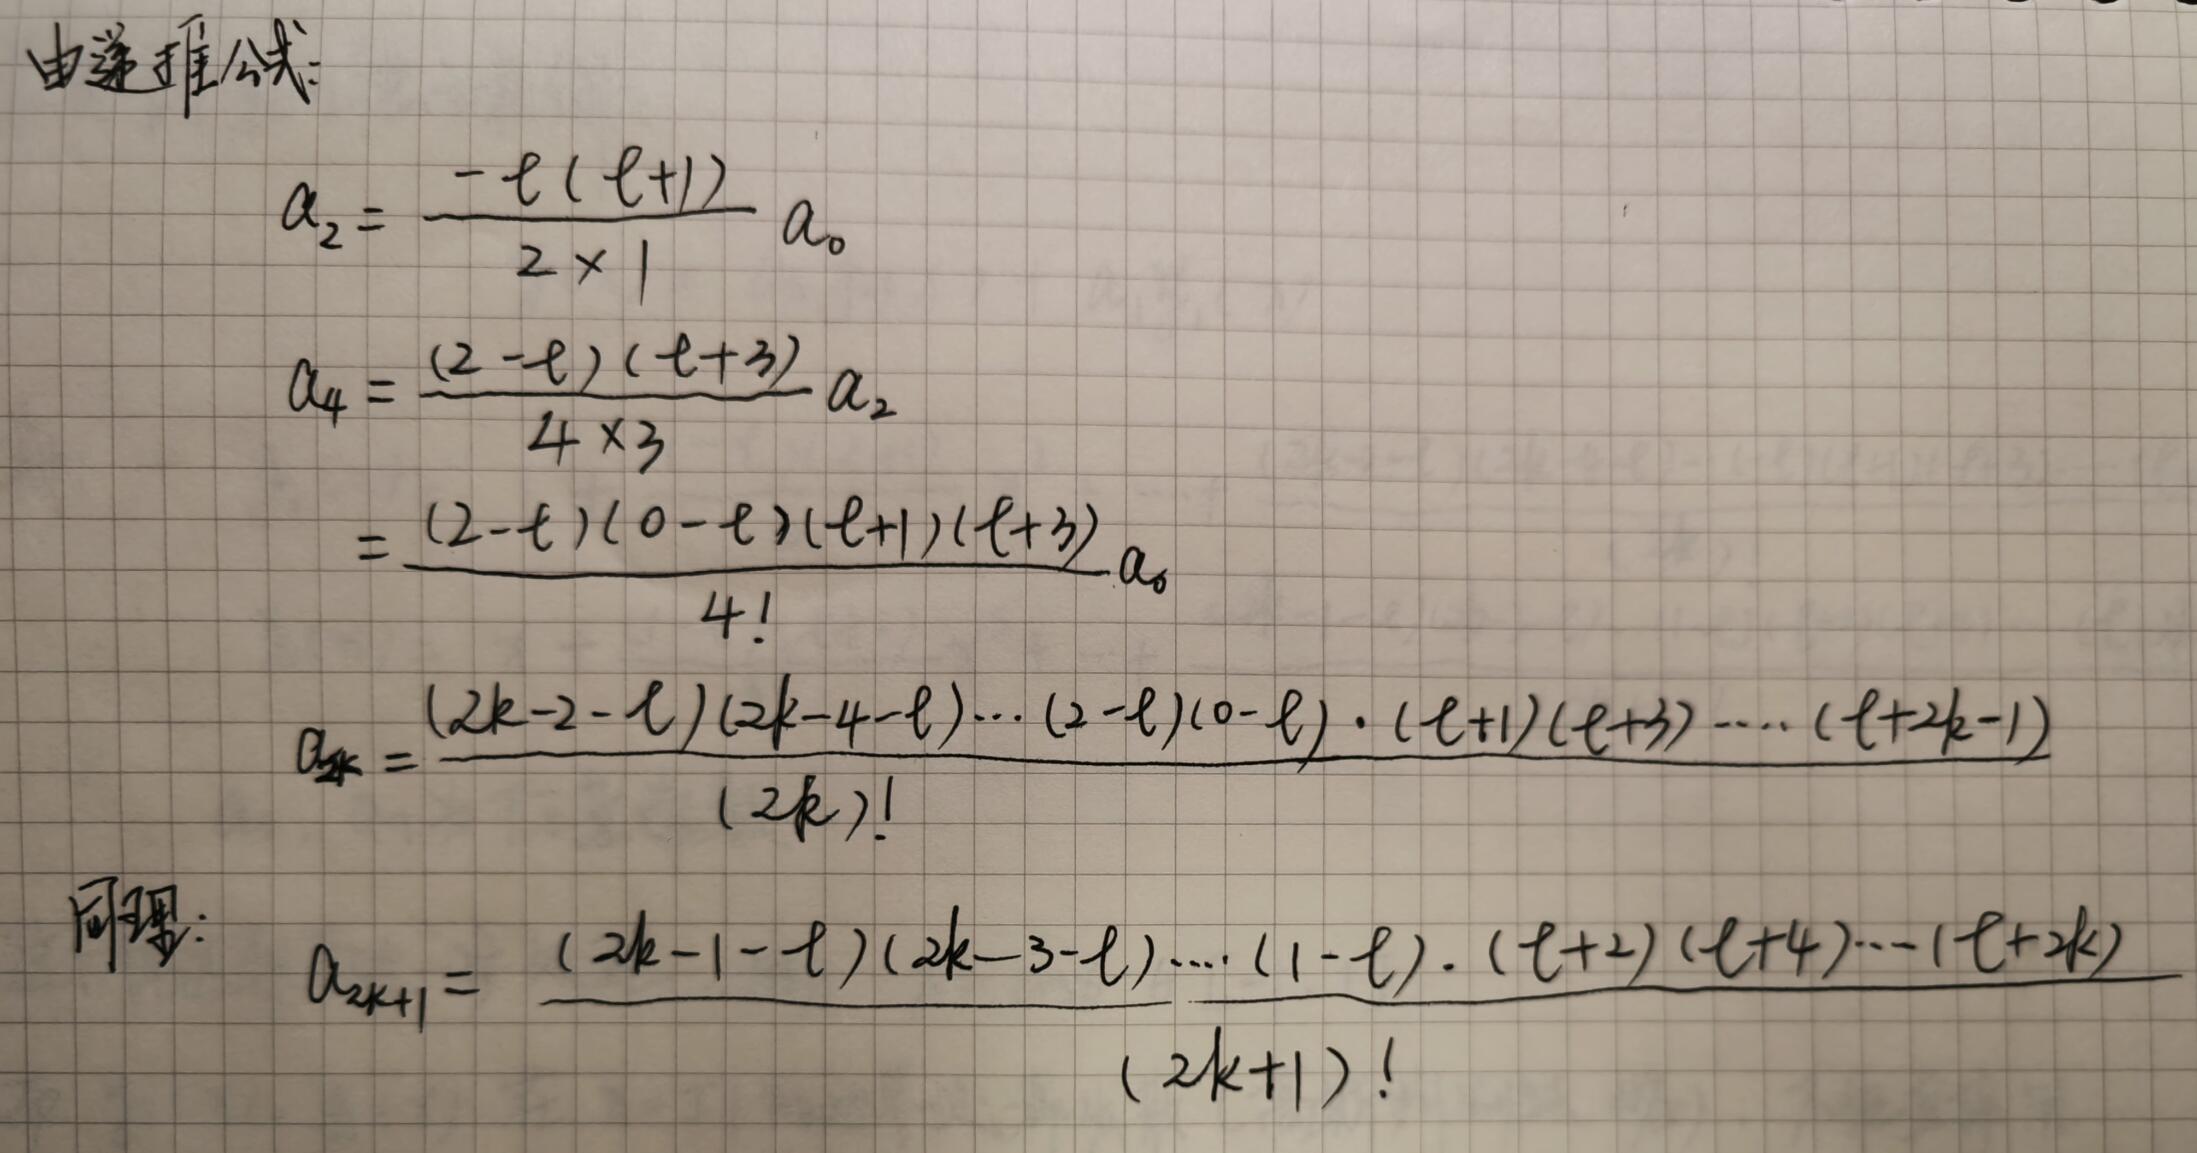 由递推公式:
a₂ = -ℓ(ℓ+1) / 2×1 a₀
a₄ = (2-ℓ)(ℓ+3) / 4×3 a₂
= (2-ℓ)(0-ℓ)(ℓ+1)(ℓ+3) / 4! a₀
a₂ₖ = (2k-2-ℓ)(2k-4-ℓ)...(2-ℓ)(0-ℓ)·(ℓ+1)(ℓ+3)....(ℓ+2k-1) / (2k)!
同理: a₂ₖ₊₁ = (2k-1-ℓ)(2k-3-ℓ)....(1-ℓ)·(ℓ+2)(ℓ+4)...(ℓ+2k) / (2k+1)!